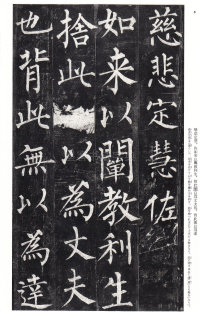 慈悲定慧佐
如来以闡教利生
捨此以為丈夫
也背此無以為達